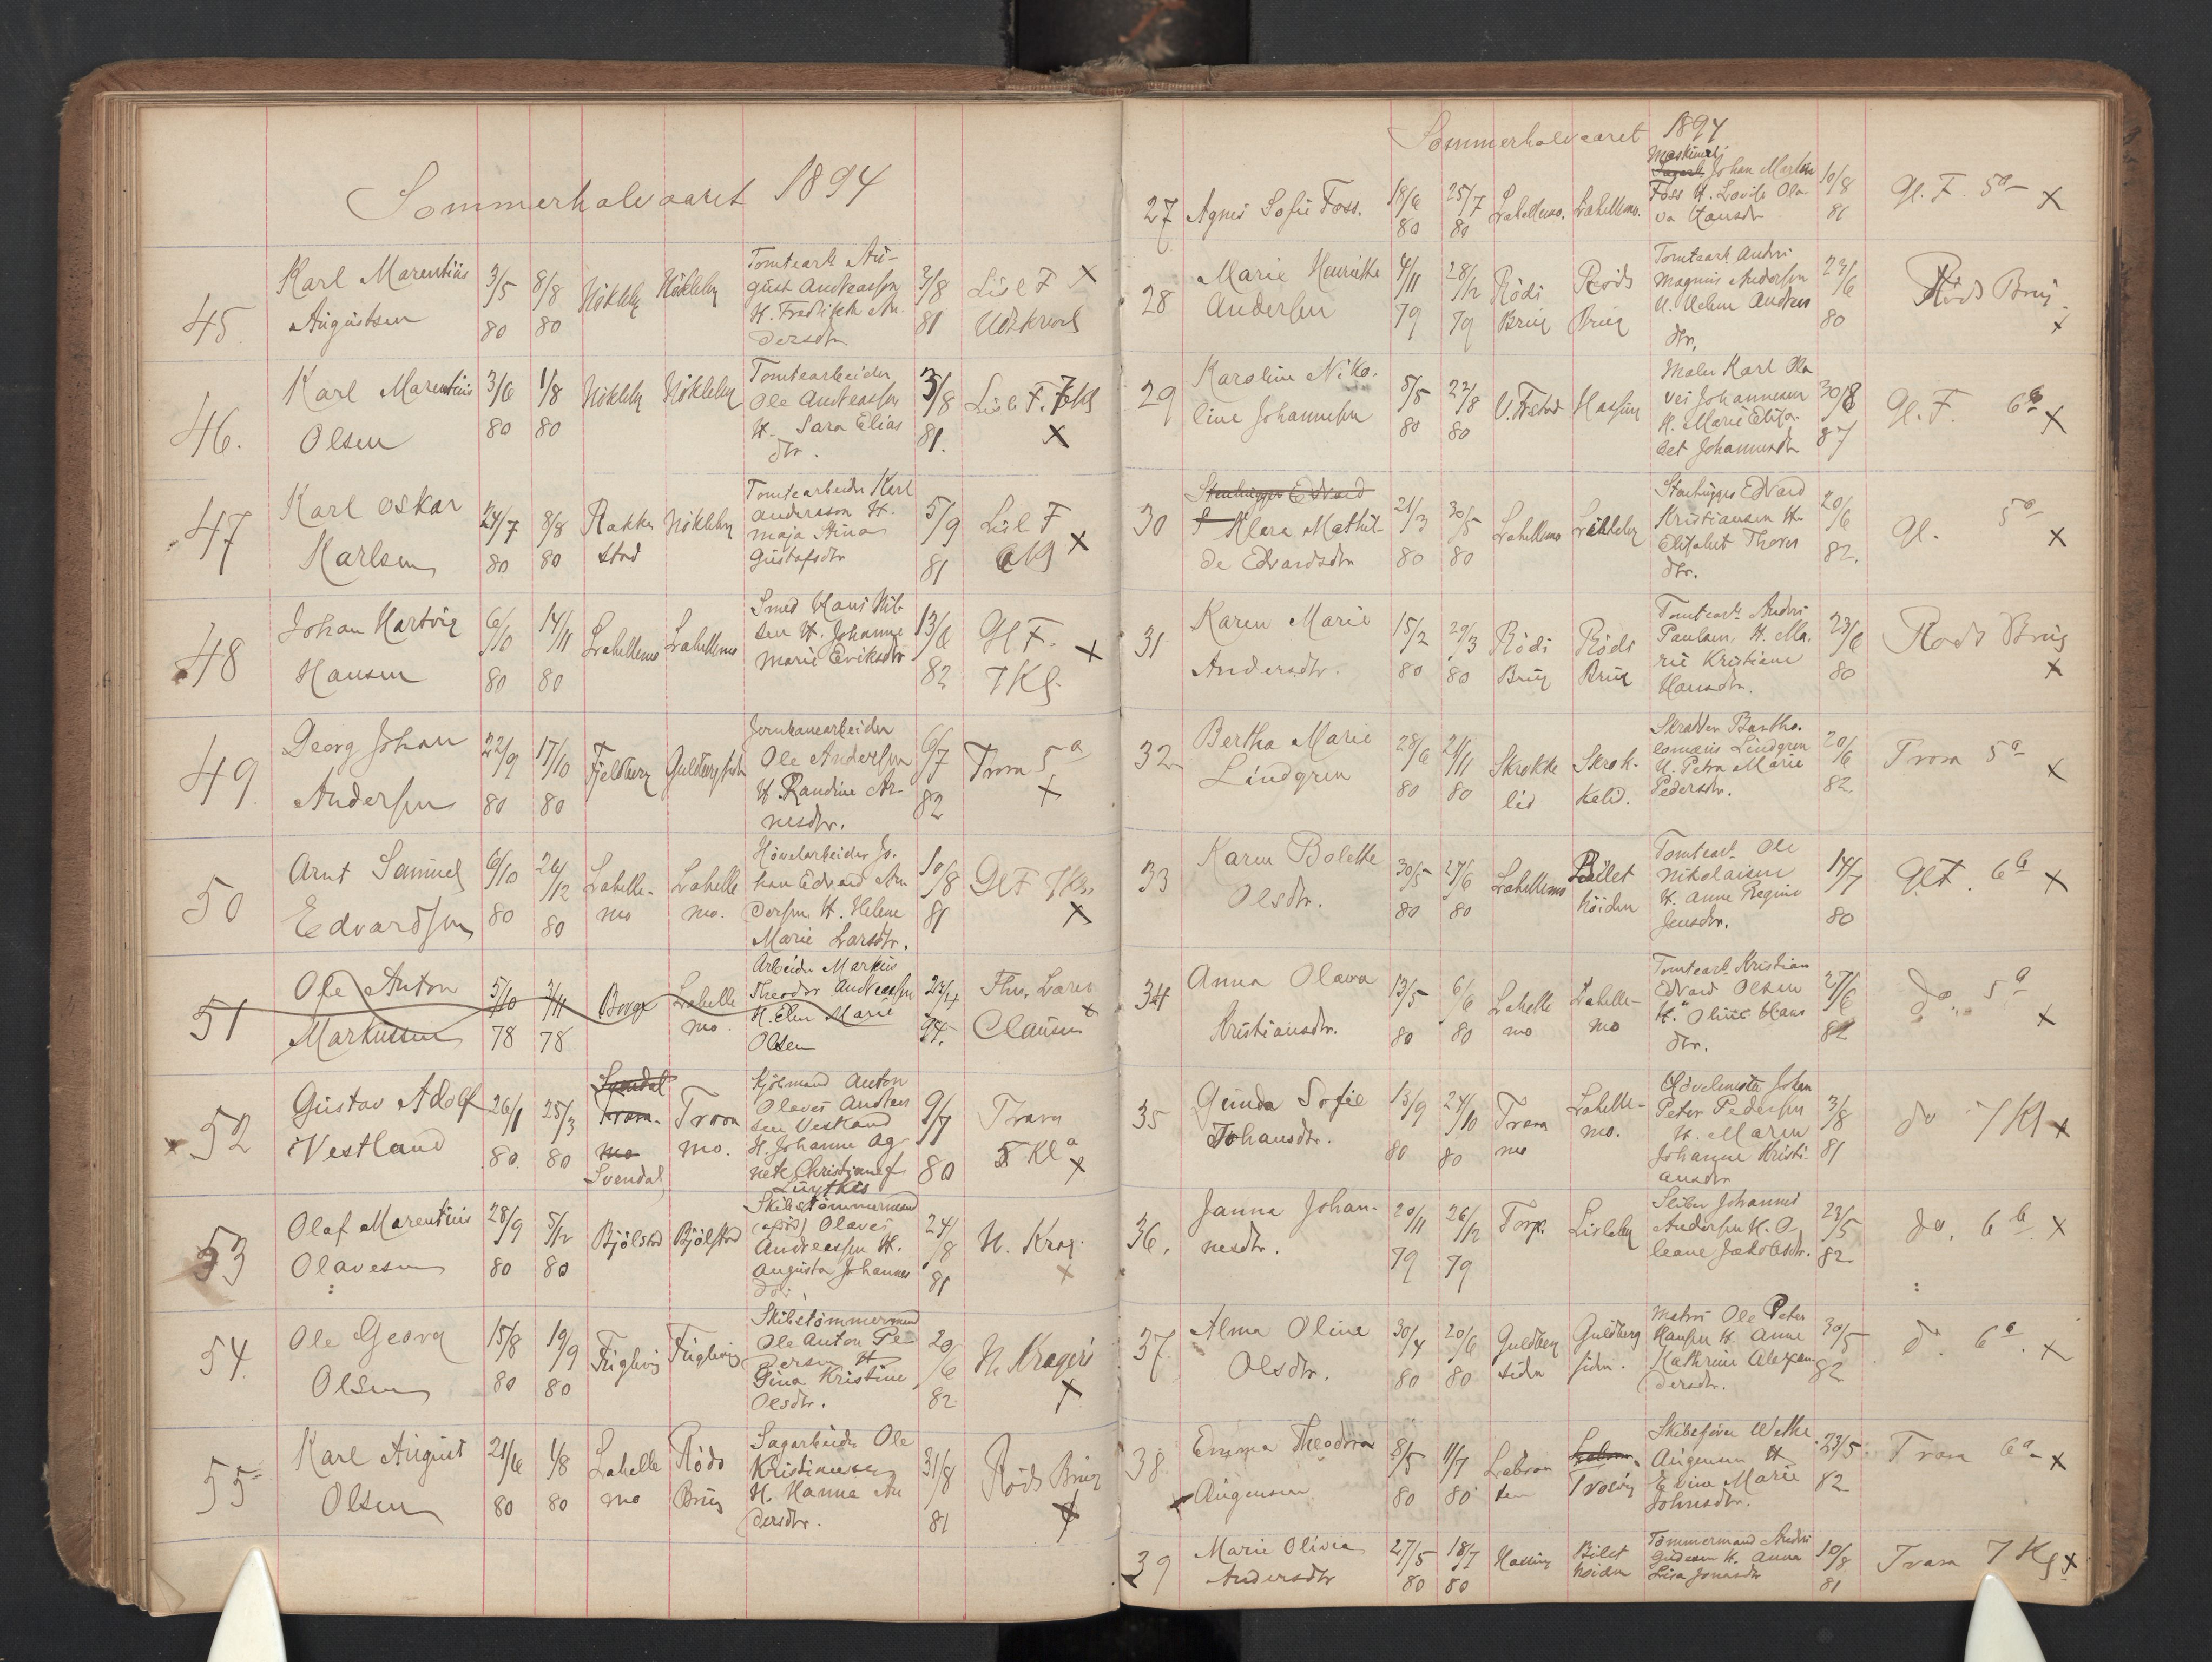 Sommerhalvaaret 1894
45. Karl Marentius Augustsen 3/5 80 8/8 80 Nökleby Nökleby Tomtearb. August Andreassen H. Andersdtr 3/8 81 Lisl F X
46. Karl Marentius Olsen 3/6 80 1/8 80 Nökleby Nökleby Tomtearbeider Ole Andreassen H. Sara Eliasdtr. 3/8 81. Lisl. F. 7 Kl X
47 Karl Oskar Karlsen 24/7 80 8/8 80 Rakkestad Nökleby Tomtearbeider Karl Andersson H. Maja Stina Gustafsdtr 5/9 81 Lisl F X
48 Johan Hartvig Hansen 6/10 80 14/11 80 Lahellemo Lahellemo Smed Hans Nilsen H. Johanne Marie Eriksdtr 13/6 82 Gl F. 7 Kl. X
49. Georg Johan Andersen 22/9 80 17/10 80 Fjeldberg Guldbergsiden Jernbanearbeider Ole Andersen H. Randine Arnesdtr. 6/7 82 Trara 5 a X
50 Arnt Samuel Edvardsen 6/10 80 26/12 80 Lahellemo Lahellemo. Hövelarbeider Johan Edvard Andersen H. Helene Marie Larsdtr. 10/8 81 Gl F 7 Kl. X
51 Ole Anton Markussen 5/10 78 3/11 78 Borge Lahellemo. Arbeider Markus Theodor Andreassen H. Elen Marie Olsen 94. X
52 Gustav Adolf Vestland 26/1 80. 25/3 80 Svendal Trara mo Svendal Trara mo. Anton Olaves Andersen Vestland H. Johanne Agnete Christiansf Lüytkis 9/7 80 Trara 5 Kl a X
53 Olaf Marentius Olavesen 28/9 80 5/12 80 Bjölstad Bjölstad Skibstömmermand Olaves Andreassen H. Augusta Johannesdtr. 24/8 81 N. Krag. X
54. Ole Georg Olsen 15/8 80 19/9 80 Fuglevig Fuglevig Skibstömmermand Ole Anton Pedersen H Gina Kristine Olsdtr. 20/6 82 N. Kragerö X
55 Karl August Olsen 21/6 80 1/8 80 Lahelle mo Röds Brug Sagarbeider Ole Kristiansen H. Hanna Andersdtr. 31/8 81 Röds Brug X
Sommerhalvaaret 1894
27 Agnes Sofie Foss. 18/6 80 25/7 80 Lahellemo. Lahellemo. Maskinarb Sagarb. Johan Martin Foss H. Lovise Olava Hansdtr 10/8 81 Gl. F. 5 a X
28 Marie Henriette Andersen 4/11 79 28/12 79 Röds Brug Röds Brug Tomtearb Anders Magnus Andersen H. Andersdtr. 23/6 80 Röds Brug. X
29 Karoline Nikoline Johannesen 5/5 80 22/8 80 V. Fredr Hassing Maler Karl Olaves Johannesen H. Marie Elisabet Johannesdtr 30/8 87 Gl. F. 6 b X
30 Stenhugger Edvard Klara Mathilde Edvardsdtr 21/3 80 30/5 80 Lahellemo Stenhugger Edvard Kristiansen H. Elisabet Thoresdtr. 20/6 82. Gl. 5 a X
31 Karen Marie Andersdtr. 15/2 80 29/3 80 Röds Brug Röds Brug Tomtearb. Anders Paulsen, H. Marie Kristiane Hansdtr. 23/6 80 Röds Brug X
32 Bertha Marie Lindgren 28/6 80 21/11 80 Skrokkelid Skrokkelid. Skrædder Bartholomæus Lindgren H. Petra Marie Pedersdtr. 20/6 82. Trara 5 a X
33 Karen Bolette Olsdtr. 30/5 80 27/6 80 Lahellemo Bilet höiden Tomtearb. Ole Nikolaisen H. Anne Regine Jensdtr. 14/7 80 Gl F. 6 b X
34 Anna Olava Kristiansdtr. 13/5 80 6/6 80 Lahelle mo Lahelle-mo Tomtearb. Kristian Edvard Olsen H. Oline Hansdtr. 27/6 82 do. 5 a X
35 Gunda Sofie Johansdtr. 13/9 80 24/10 80 Trara mo Lahelle-mo. Hövelmester Johan Peter Pedersen H. Maren Johanne Kristiansdtr 3/8 81 do 7 Kl X
36. Janna Johannesdtr. 20/11 79 26/12 79 Torp. Lisleby Sliber Johannes Andersen H. Oleane Jakobsdtr. 23/5 82 do. 6 b X
37. Alma Oline Olsdtr. 30/4 80 20/6 80 Guldberg siden Guldberg siden. Matros Ole Peter Hansen H. Anne Kathrine Alexandersdtr. 30/5 82 do. 6 a. X
38 Emma Theodora Augensen 8/5 80 11/7 80 Skibsfører Augensen H Marie Johnsdtr. 23/5 82 Trara 6 a X
39 Marie Olivia Andersdtr 27/5 80 18/7 80 Hassing Bilet höiden Tömmermand Anders H. Anna Lisa Jonasdtr 10/8 81 Trara 7 Kl X